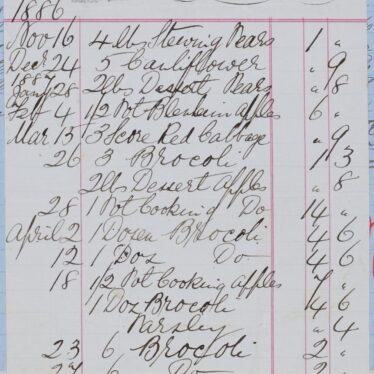 1886
Nov 16 4 lbs Stewing Pears 1 "
Decr 24 5 Cauliflower " 9
1887
Jany 28 2 lbs Dessert Pears " 8
Feb 4 1/2 Pot Blenheim apples 6 "
Mar 15 3 Score Red Cabbage " 9
26 3 Brocoli 1 3
2 lbs Dessert apples " 8
28 1 Pot Cooking Do 14 "
April 2 1 Dozen Brocoli 4 6
12 1 Doz Do 4 6
18 1/2 Pot Cooking apples 7 "
1 Doz Brocoli 4 6
Parsley " 4
23 6 Brocoli 2 "
6 Do 2 "